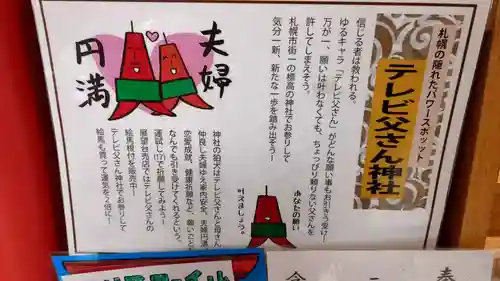 札幌の隠れたパワースポット
テレビ父さん神社
信じる者は救われる。
ゆるキャラ「テレビ父さん」がどんな願い事もお引き受け!
万が一、願いは叶わなくても、ちょっぴり頼りない父さんを
許してしまえそう。
札幌市街一の標高の神社でお参りして
気分一新、新たな一歩を踏み出そう!
夫婦
円満
神社の狛犬はテレビ父さんと母さん
仲良し夫婦ゆえ家内安全、夫婦円満
恋愛成就、健康祈願など、願いごと
なんでも引き受けてくれるという。
運試し(!?)で祈願してみよう!
展望台売店ではテレビ父さんの
絵馬根付を販売中!
テレビ父さん神社でお参りして
絵馬も買って運気を2倍に!
あなたの願い
叶えましょう。